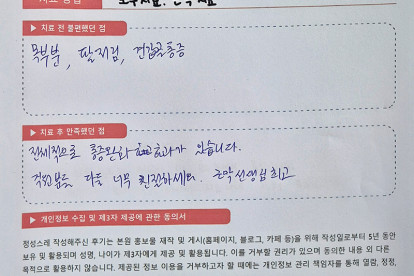 ▶ 치료 전 불편했던 점
목부분, 팔저림, 견갑골통증
▶ 치료 후 만족했던 점
전체적으로 통증완화 효과가 있습니다.
직원분들 다들 너무 친절하세요. 근막선생님 최고
▶ 개인정보 수집 및 제3자 제공에 관한 동의서
정성스레 작성해주신 후기는 본원 홍보물 제작 및 게시(홈페이지, 블로그, 카페 등)을 위해 작성일로부터 5년 동안
보유 및 활용되며 성명, 나이가 제3자에게 제공 및 활용됩니다. 이를 거부할 권리가 있으며 동의한 내용 외 다른
목적으로 활용하지 않습니다. 제공된 정보 이용을 거부하고자 할 때에는 개인정보 관리 책임자를 통해 열람, 정정,